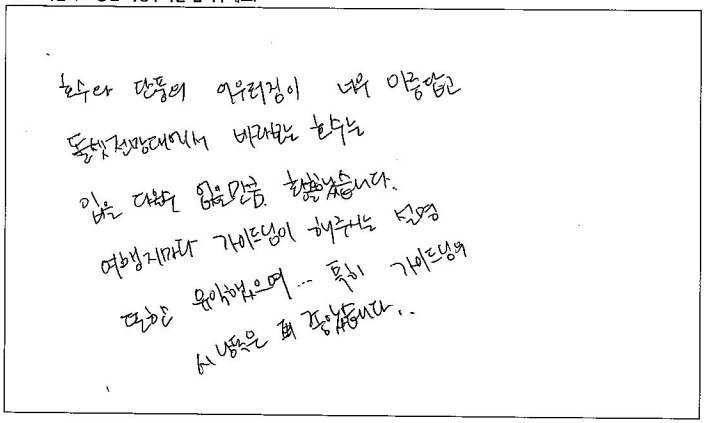 호수와 단풍의 어우러짐이 너무 아름답고
돌셋전망대에서 바라보는 호수는
입을 다물수 없을만큼 황홀했습니다.
여행지마다 가이드님이 해주시는 설명
또한 유익했으며... 특히 가이드님의
시 낭독은 퍽 좋았습니다..